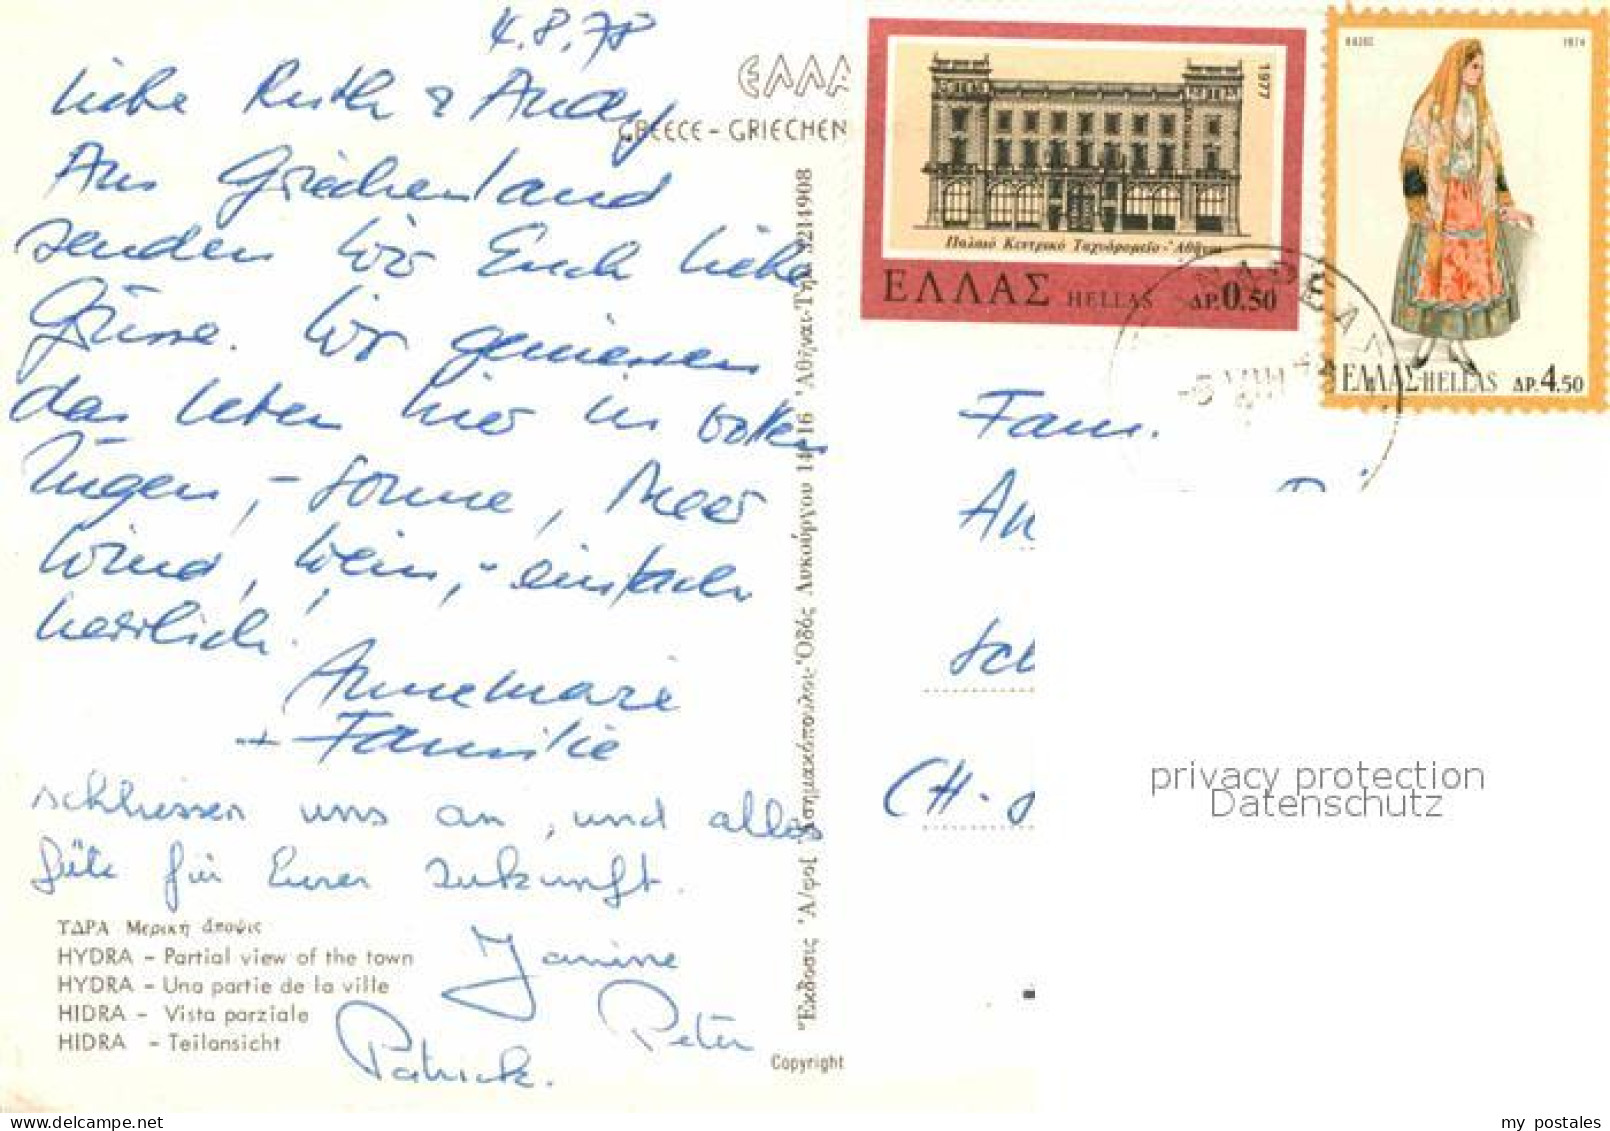 4.8.78
Liebe Ruth & Andy
Aus Griechenland
senden wir Euch liebe
Grüsse. Wir geniessen
das Leben hier in vollen
Zügen, - Sonne, Meer
Wind, Wein, - einfach
herrlich.
Annemarie
+ Familie
schliessen uns an, und alles
gute für Eurer Zukunft.
Janine
Peter
Patrick.
ΥΔΡΑ Μερική άποψις
HYDRA - Partial view of the town
HYDRA - Una partie de la ville
HIDRA - Vista parziale
HIDRA - Teilansicht
ΕΛΛΑ
GREECE - GRIECHEN
Ἔκδοσις Ἀ/φοὶ Ἀσημακόπουλοι-Ὁδὸς Λυκούργου 14-16 Ἀθῆναι-Τηλ. 3214908
Copyright
1977
Παλαιό Κεντρικό Ταχυδρομείο - Ἀθήνα
ΕΛΛΑΣ HELLAS ΔΡ.0.50
1974
ΕΛΛΑΣ-HELLAS ΔΡ.4.50
Fam.
CH-
privacy protection
Datenschutz
my postales